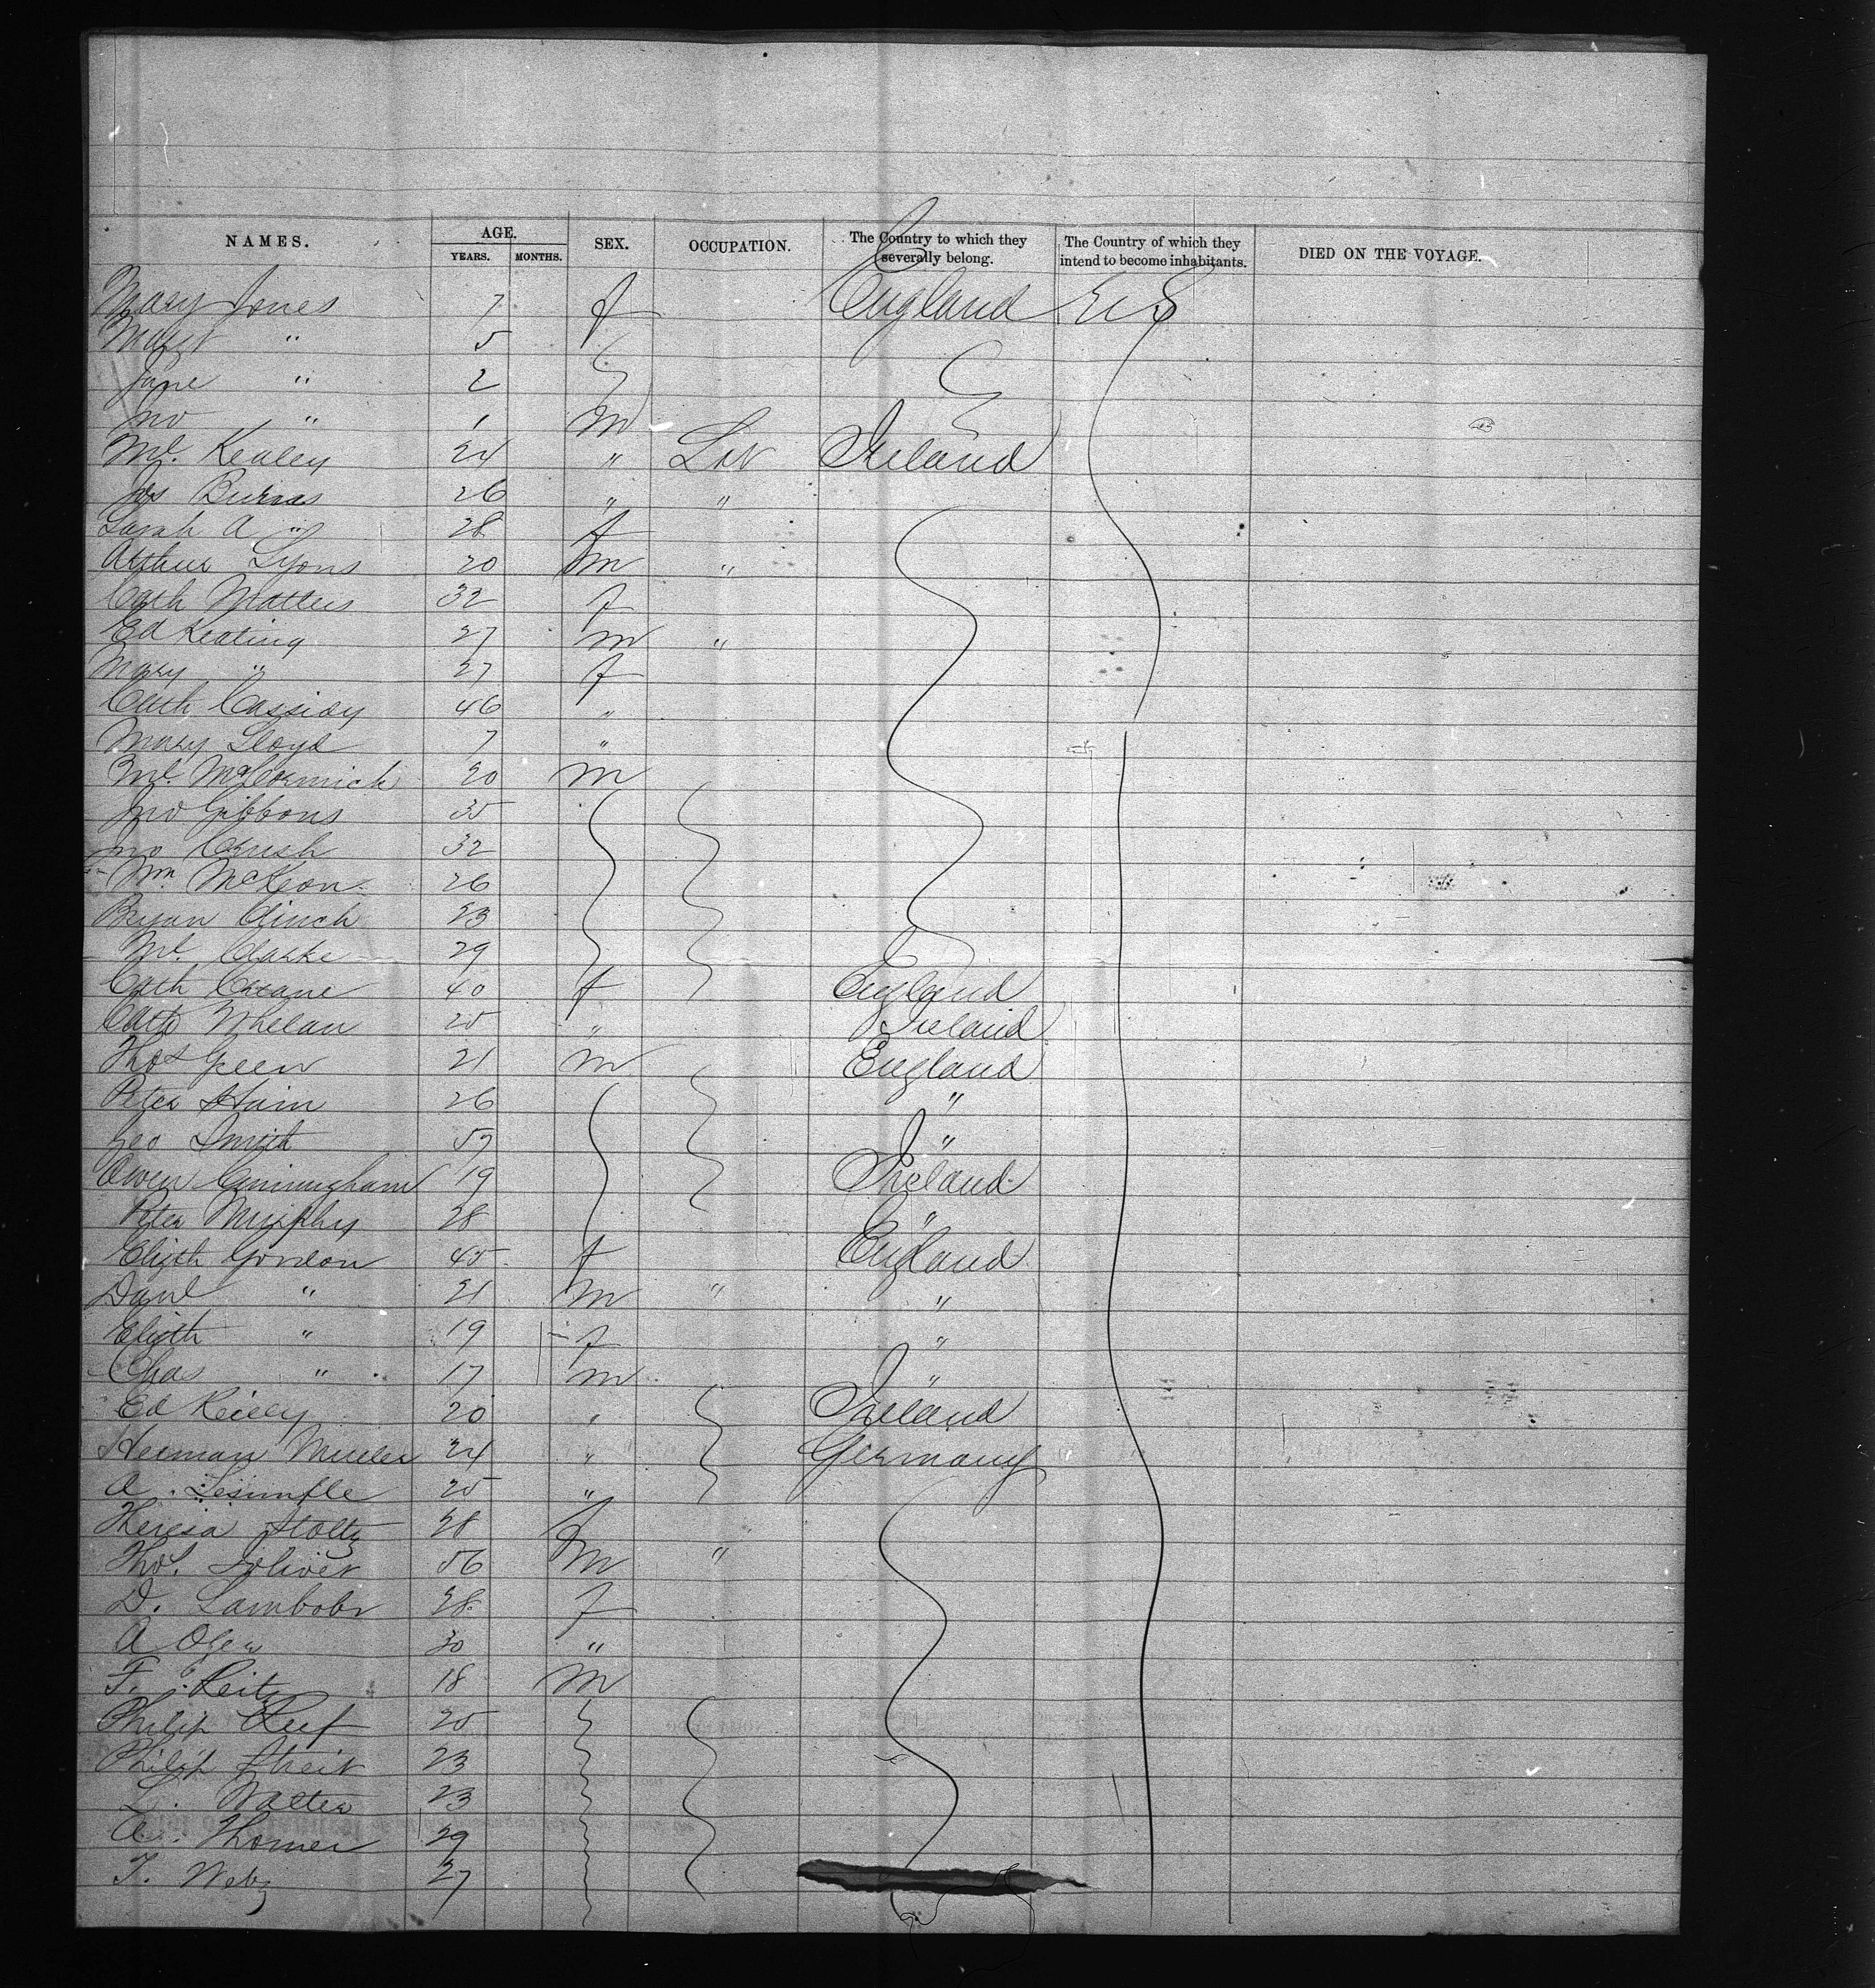 NAMES. AGE. SEX. OCCUPATION. The Country to which they severally belong. The Country of which they intend to become inhabitants. DIED ON THE VOYAGE.
YEARS. MONTHS.
Mary Jones 7 f England U S
Margt " 5
Jane " 2
Jno " 1 m
Ml. Kealey 24 " Lab Ireland
Jas Burns 26 " "
Sarah A " 28 f
Arthur Lyons 20 m "
Cath 32 f
Ed Keating 27 m "
Mary " 27 f
Cath Cassidy 46 "
Mary Lloyd 7 "
Ml. McCormick 20 m
Jno Gibbons 35
Jno Crush 32
Wm McKeon 26
Bryan Clinch 23
Ml. Clarke 29
Cath Crane 40 f England
Cath Whelan 25 " Ireland
Thos Green 21 m England
Peter Ham 26 "
Geo Smith 57 "
Owen Cunningham 19 Ireland
Peter Murphy 28 "
Elizth Gordon 45 f England
Danl " 21 m " "
Elizth " 19 f "
Chas " 17 m "
Ed Reilly 20 " Ireland
Herman Mueller 24 " Germany
A. Lesimple 25 "
Theresa Stoltz 28 f
Thos. 56 m "
D. 28 f
A 30 "
F. Reitz 18 m
Philip Reef 25
Philip Streit 23
L. Walter 23
A. Thomer 29
T. Webz 27